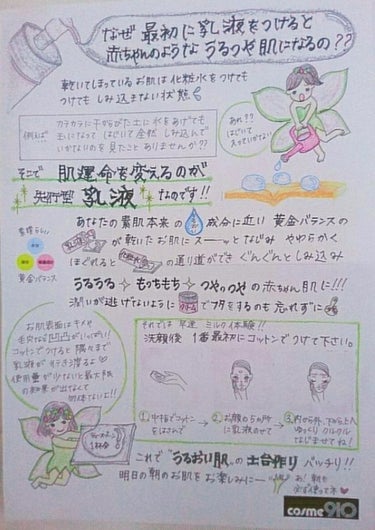 なぜ最初に乳液をつけると
赤ちゃんのようなうるつや肌になるの??
乾いてしまっているお肌は化粧水をつけても
つけてもしみ込まない状態
例えば
カラカラにひからびた土に水をあげても
玉になってはじいて全然しみ込んで
いかないのを見たことありませんか??
あれ??
はじいて
入っていかない
そこで
肌運命を変えるのが
先行型 乳液 なのです!!
あなたの素肌本来の 成分に近い黄金バランスの
が乾いたお肌にスーッとなじみ やわらかく
ほぐれると 化粧水 の通り道ができ ぐんぐんとしみ込み
素晴らしい
黄金バランス
うるうる もっちもち つやつやの赤ちゃん肌に!!!
潤いが逃げないように でフタをするのも忘れずに
お肌表面はキメや
毛穴など凹凸がいっぱい!
コットンでつけると隅々まで
乳液が行き渡るよ
使用量が少ないと最大限
の効果が出なくて
勿体ないよ!!
それでは早速 ミルク体験!!
洗顔後 1番最初にコットンでつけて下さい。
①中指でコットン
をはさんで
②お顔の5ヵ所
に乳液のせて
③内から外、下から上へ
ゆっくり クルクル
なじませてね!
ティースプーン
1杯分
これで"うるおい肌"の土台作りバッチリ!!
明日の朝のお肌をお楽しみにー
あ!朝も
必ず使ってネ
cosme910